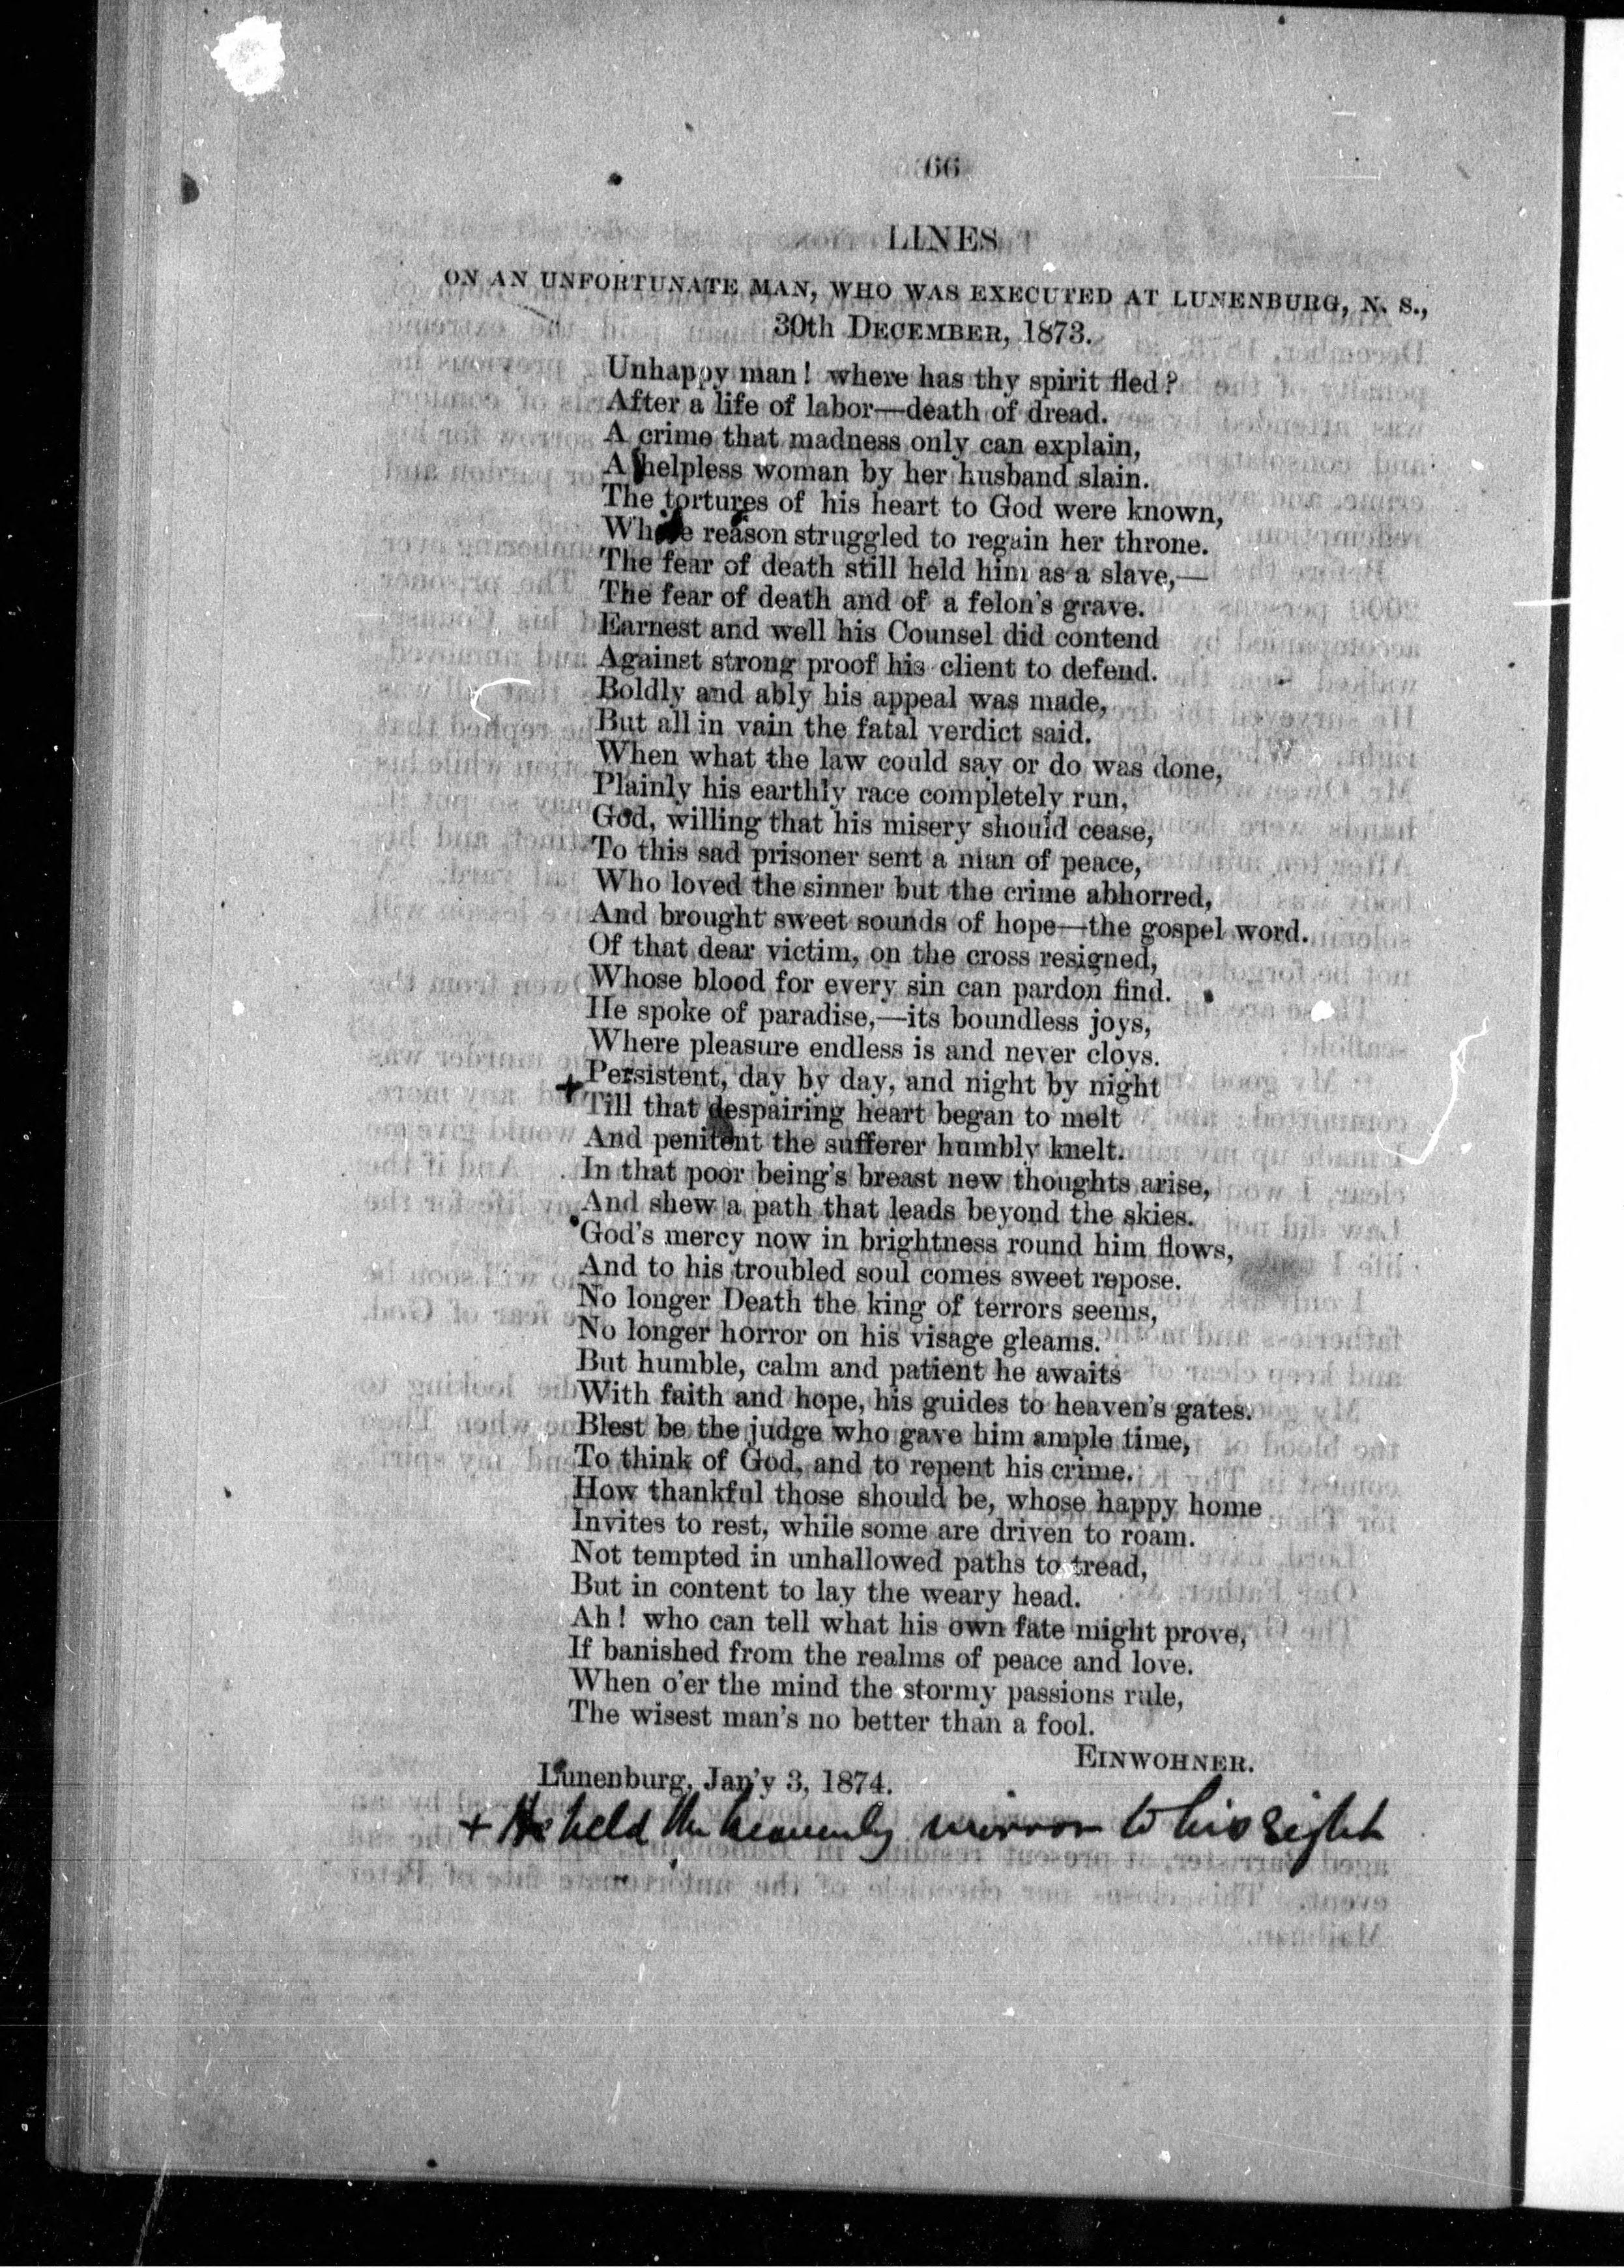 66
LINES
ON AN UNFORTUNATE MAN, WHO WAS EXECUTED AT LUNENBURG, N. S.,
30th DECEMBER, 1873.
Unhappy man! where has thy spirit fled?
After a life of labor—death of dread.
A crime that madness only can explain,
A helpless woman by her husband slain.
The tortures of his heart to God were known,
reason struggled to regain her throne.
The fear of death still held him as a slave,—
The fear of death and of a felon's grave.
Earnest and well his Counsel did contend
Against strong proof his client to defend.
Boldly and ably his appeal was made,
But all in vain the fatal verdict said.
When what the law could say or do was done,
Plainly his earthly race completely run,
God, willing that his misery should cease,
To this sad prisoner sent a man of peace,
Who loved the sinner but the crime abhorred,
And brought sweet sounds of hope—the gospel word.
Of that dear victim, on the cross resigned,
Whose blood for every sin can pardon find.
He spoke of paradise,—its boundless joys,
Where pleasure endless is and never cloys.
Persistent, day by day, and night by night
+ Till that despairing heart began to melt
And penitent the sufferer humbly knelt.
In that poor being's breast new thoughts arise,
And shew a path that leads beyond the skies.
God's mercy now in brightness round him flows,
And to his troubled soul comes sweet repose.
No longer Death the king of terrors seems,
No longer horror on his visage gleams.
But humble, calm and patient he awaits
With faith and hope, his guides to heaven's gates.
Blest be the judge who gave him ample time,
To think of God, and to repent his crime.
How thankful those should be, whose happy home
Invites to rest, while some are driven to roam.
Not tempted in unhallowed paths to tread,
But in content to lay the weary head.
Ah! who can tell what his own fate might prove,
If banished from the realms of peace and love.
When o'er the mind the stormy passions rule,
The wisest man's no better than a fool.
EINWOHNER.
Lunenburg, Jan'y 3, 1874.
+ He held the heavenly mirror to his sight